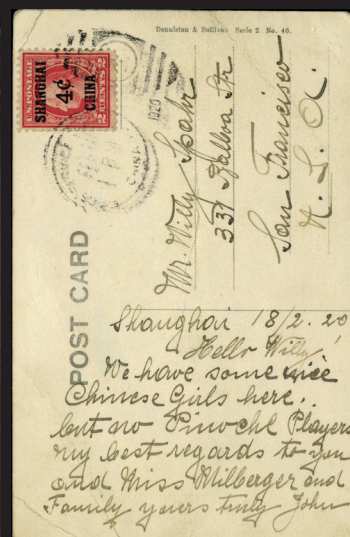 Dennistan & Sullivan Serie 2 No. 40.
U.S. POSTAGE
SHANGHAI
4¢
CHINA
2 CENTS 2
1920
Mr. Willy Spahr
337 Balboa Str
San Francisco
U. S. A.
POST CARD
Shanghai 18/2. 20
Hello Willy!
We have some nice
Chinese Girls here.
but no Pinochl Players
my best regards to you
and Miss Milberger and
Family yours truly John